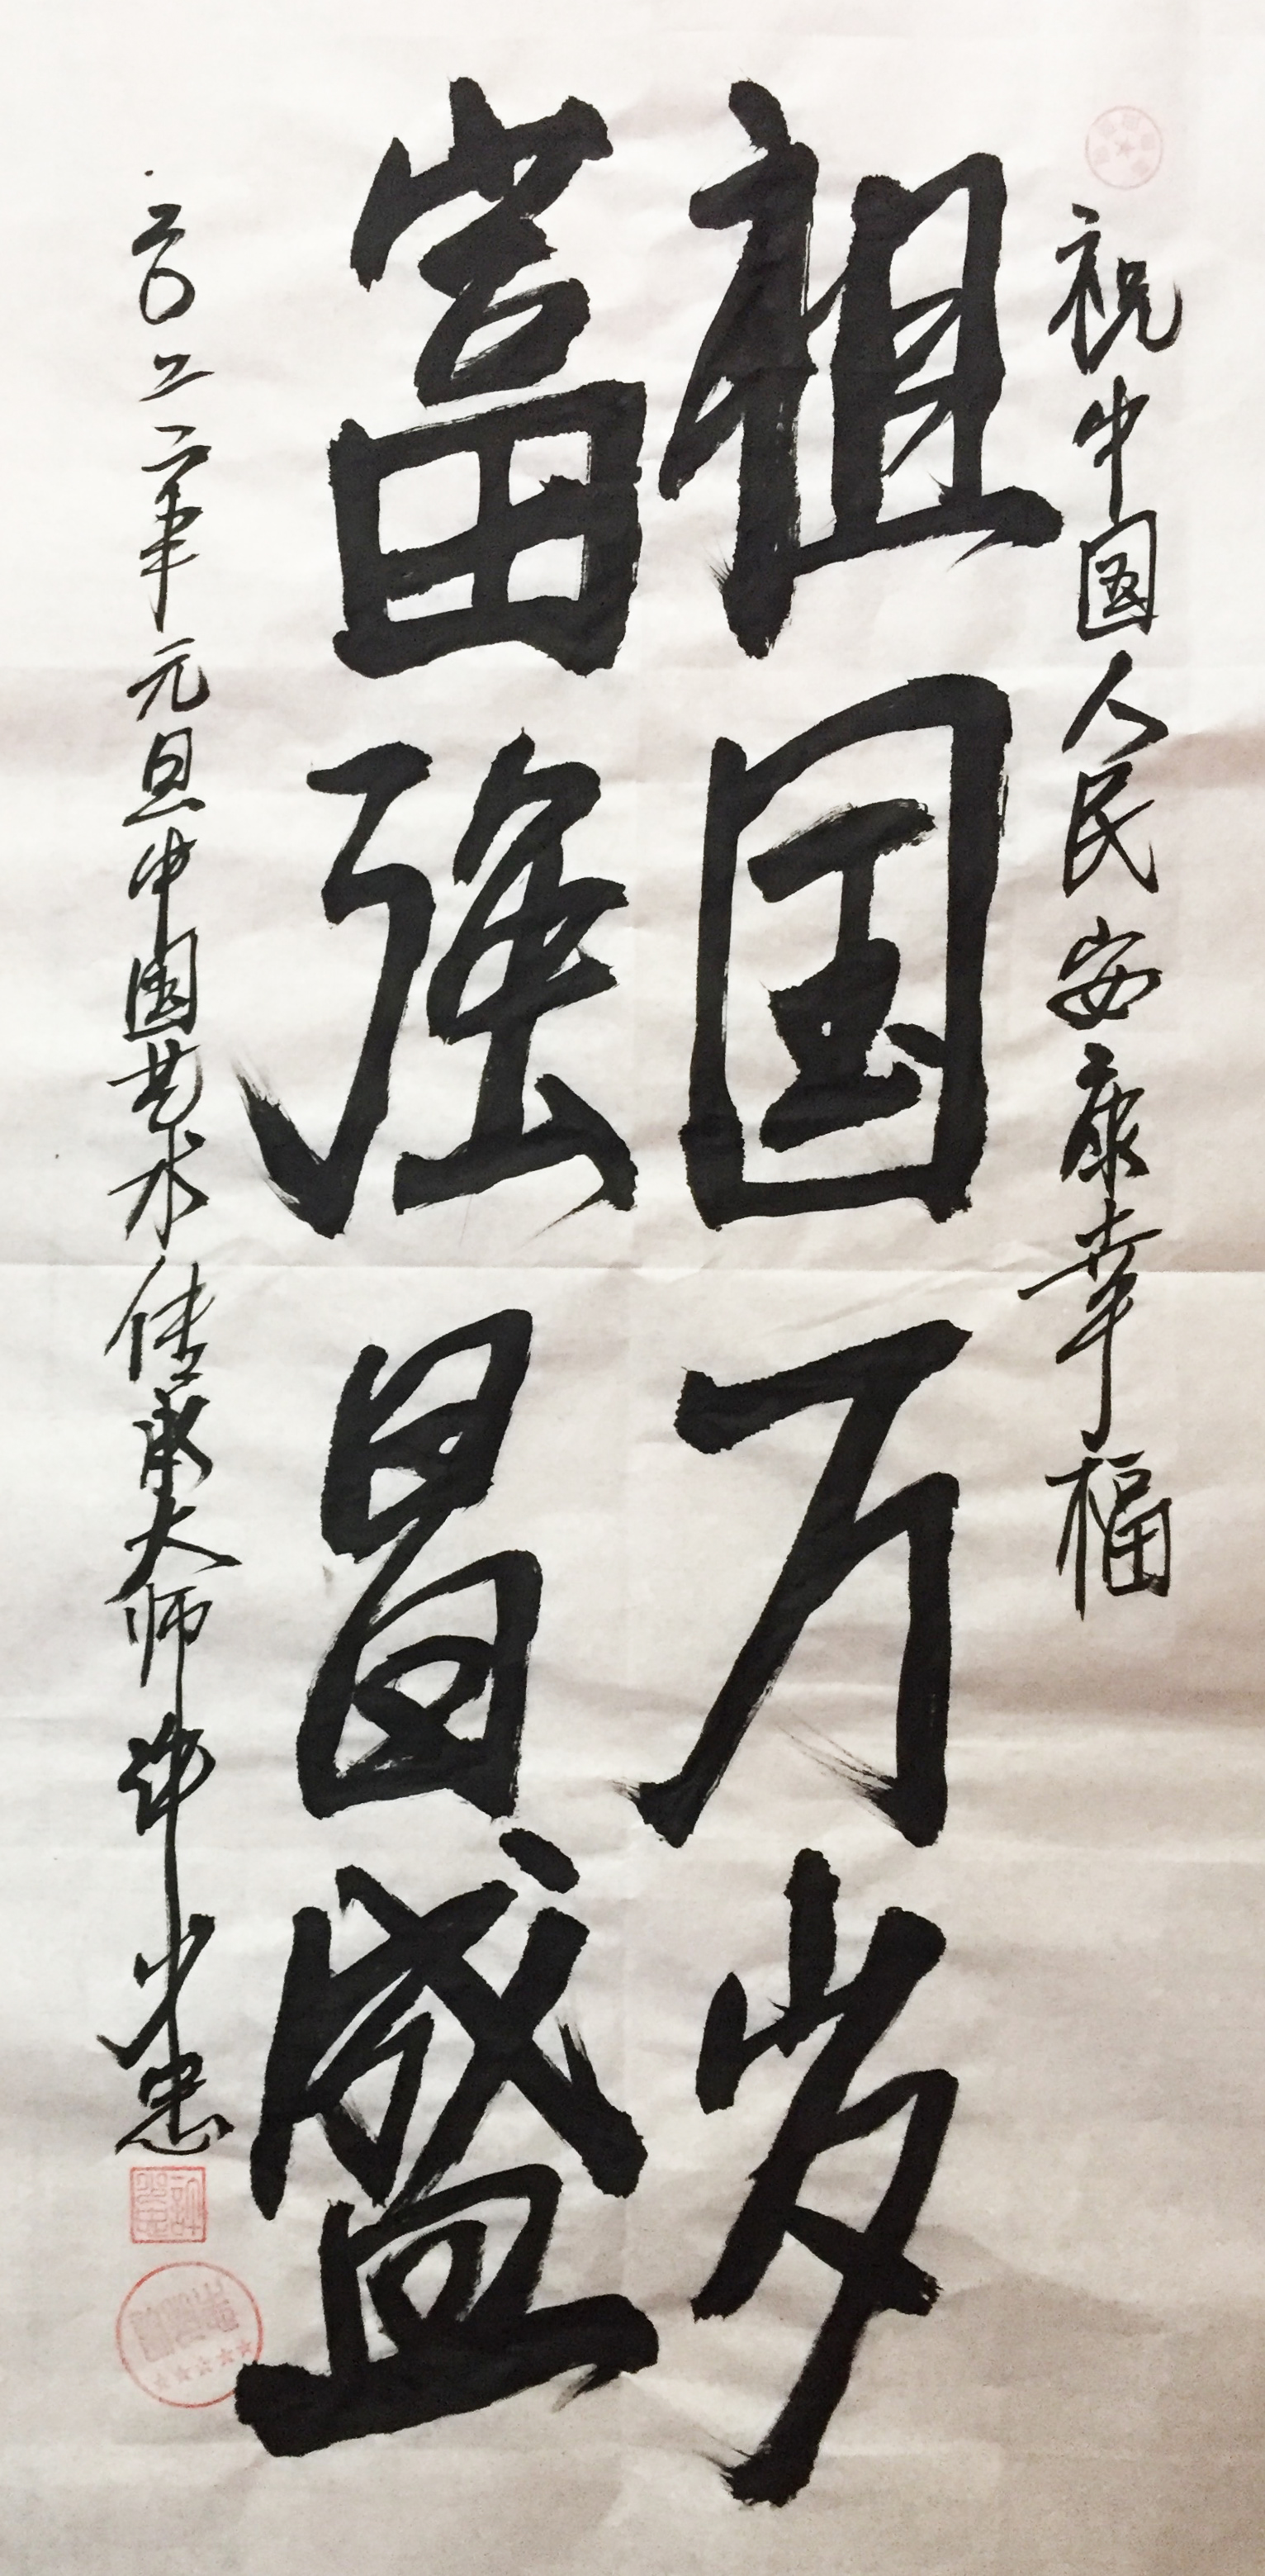 祝中国人民安康幸福
祖国万岁
富强昌盛
二〇二二年元旦中国艺术传承大师许少忠